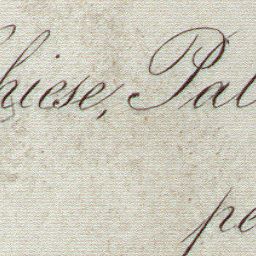 hiese, Pal
pe